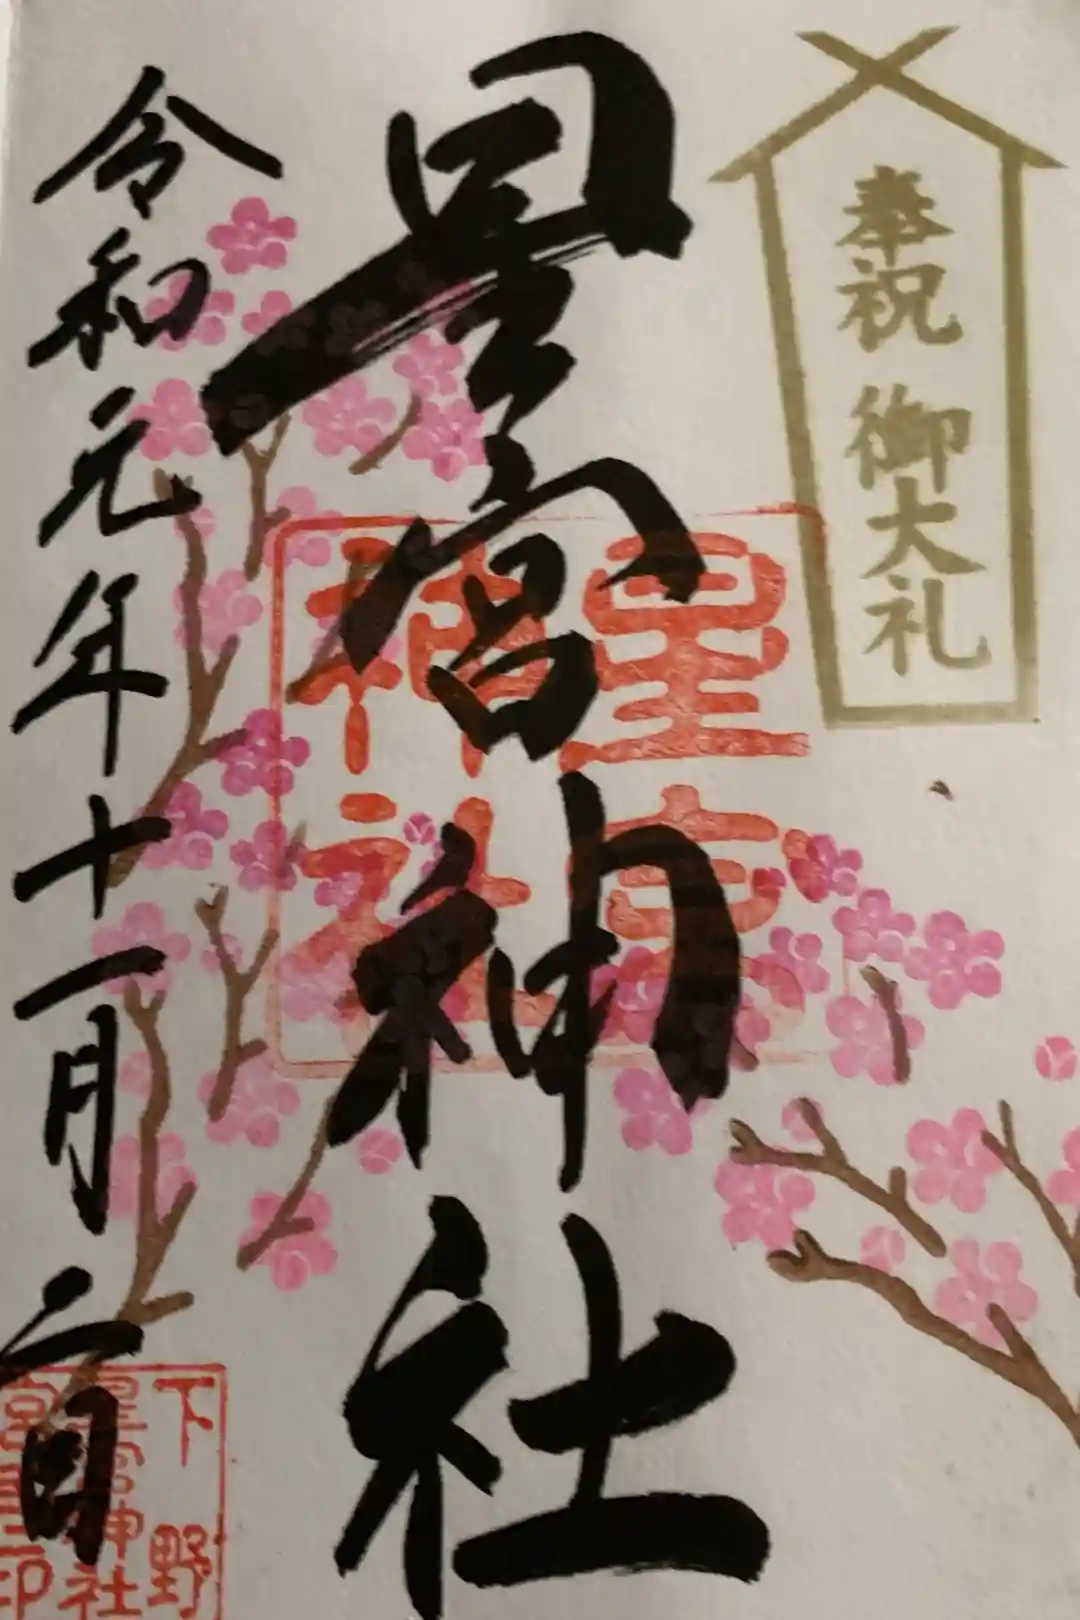 奉祝 御大礼
星宮神社
星宮
神社
令和元年十一月二日
下野
星宮神社